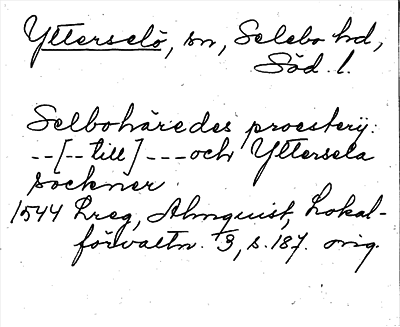 Ytterselö, sn, Selebo hd,
Söd. l.
Selbohäredes proesterij:
--[--till]---och Yttersela
sockner.
1544 Lreg, Almquist, Lokal-
förvaltn. 3, s. 187. orig.